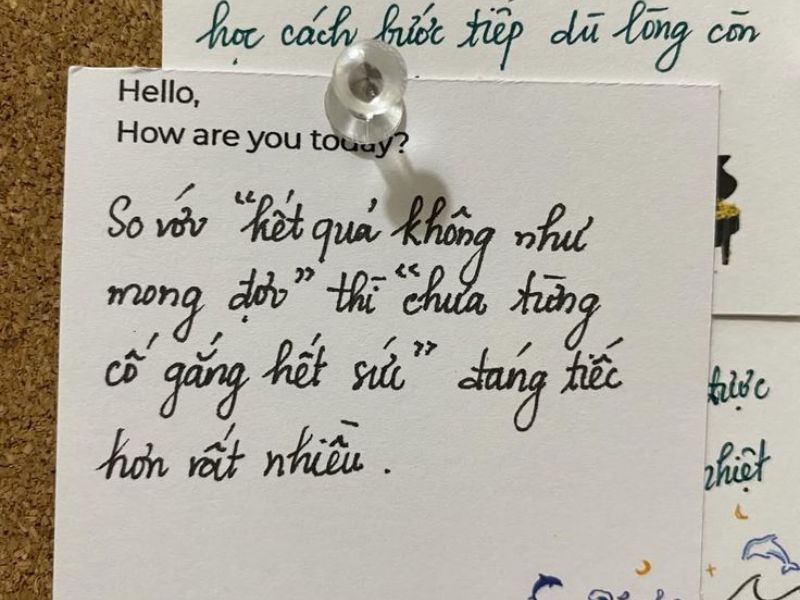 học cách bước tiếp dù lòng còn
Hello,
How are you today?
So với “kết quả không như
mong đợi” thì “chưa từng
cố gắng hết sức” đáng tiếc
hơn rất nhiều.
được
nhiệt